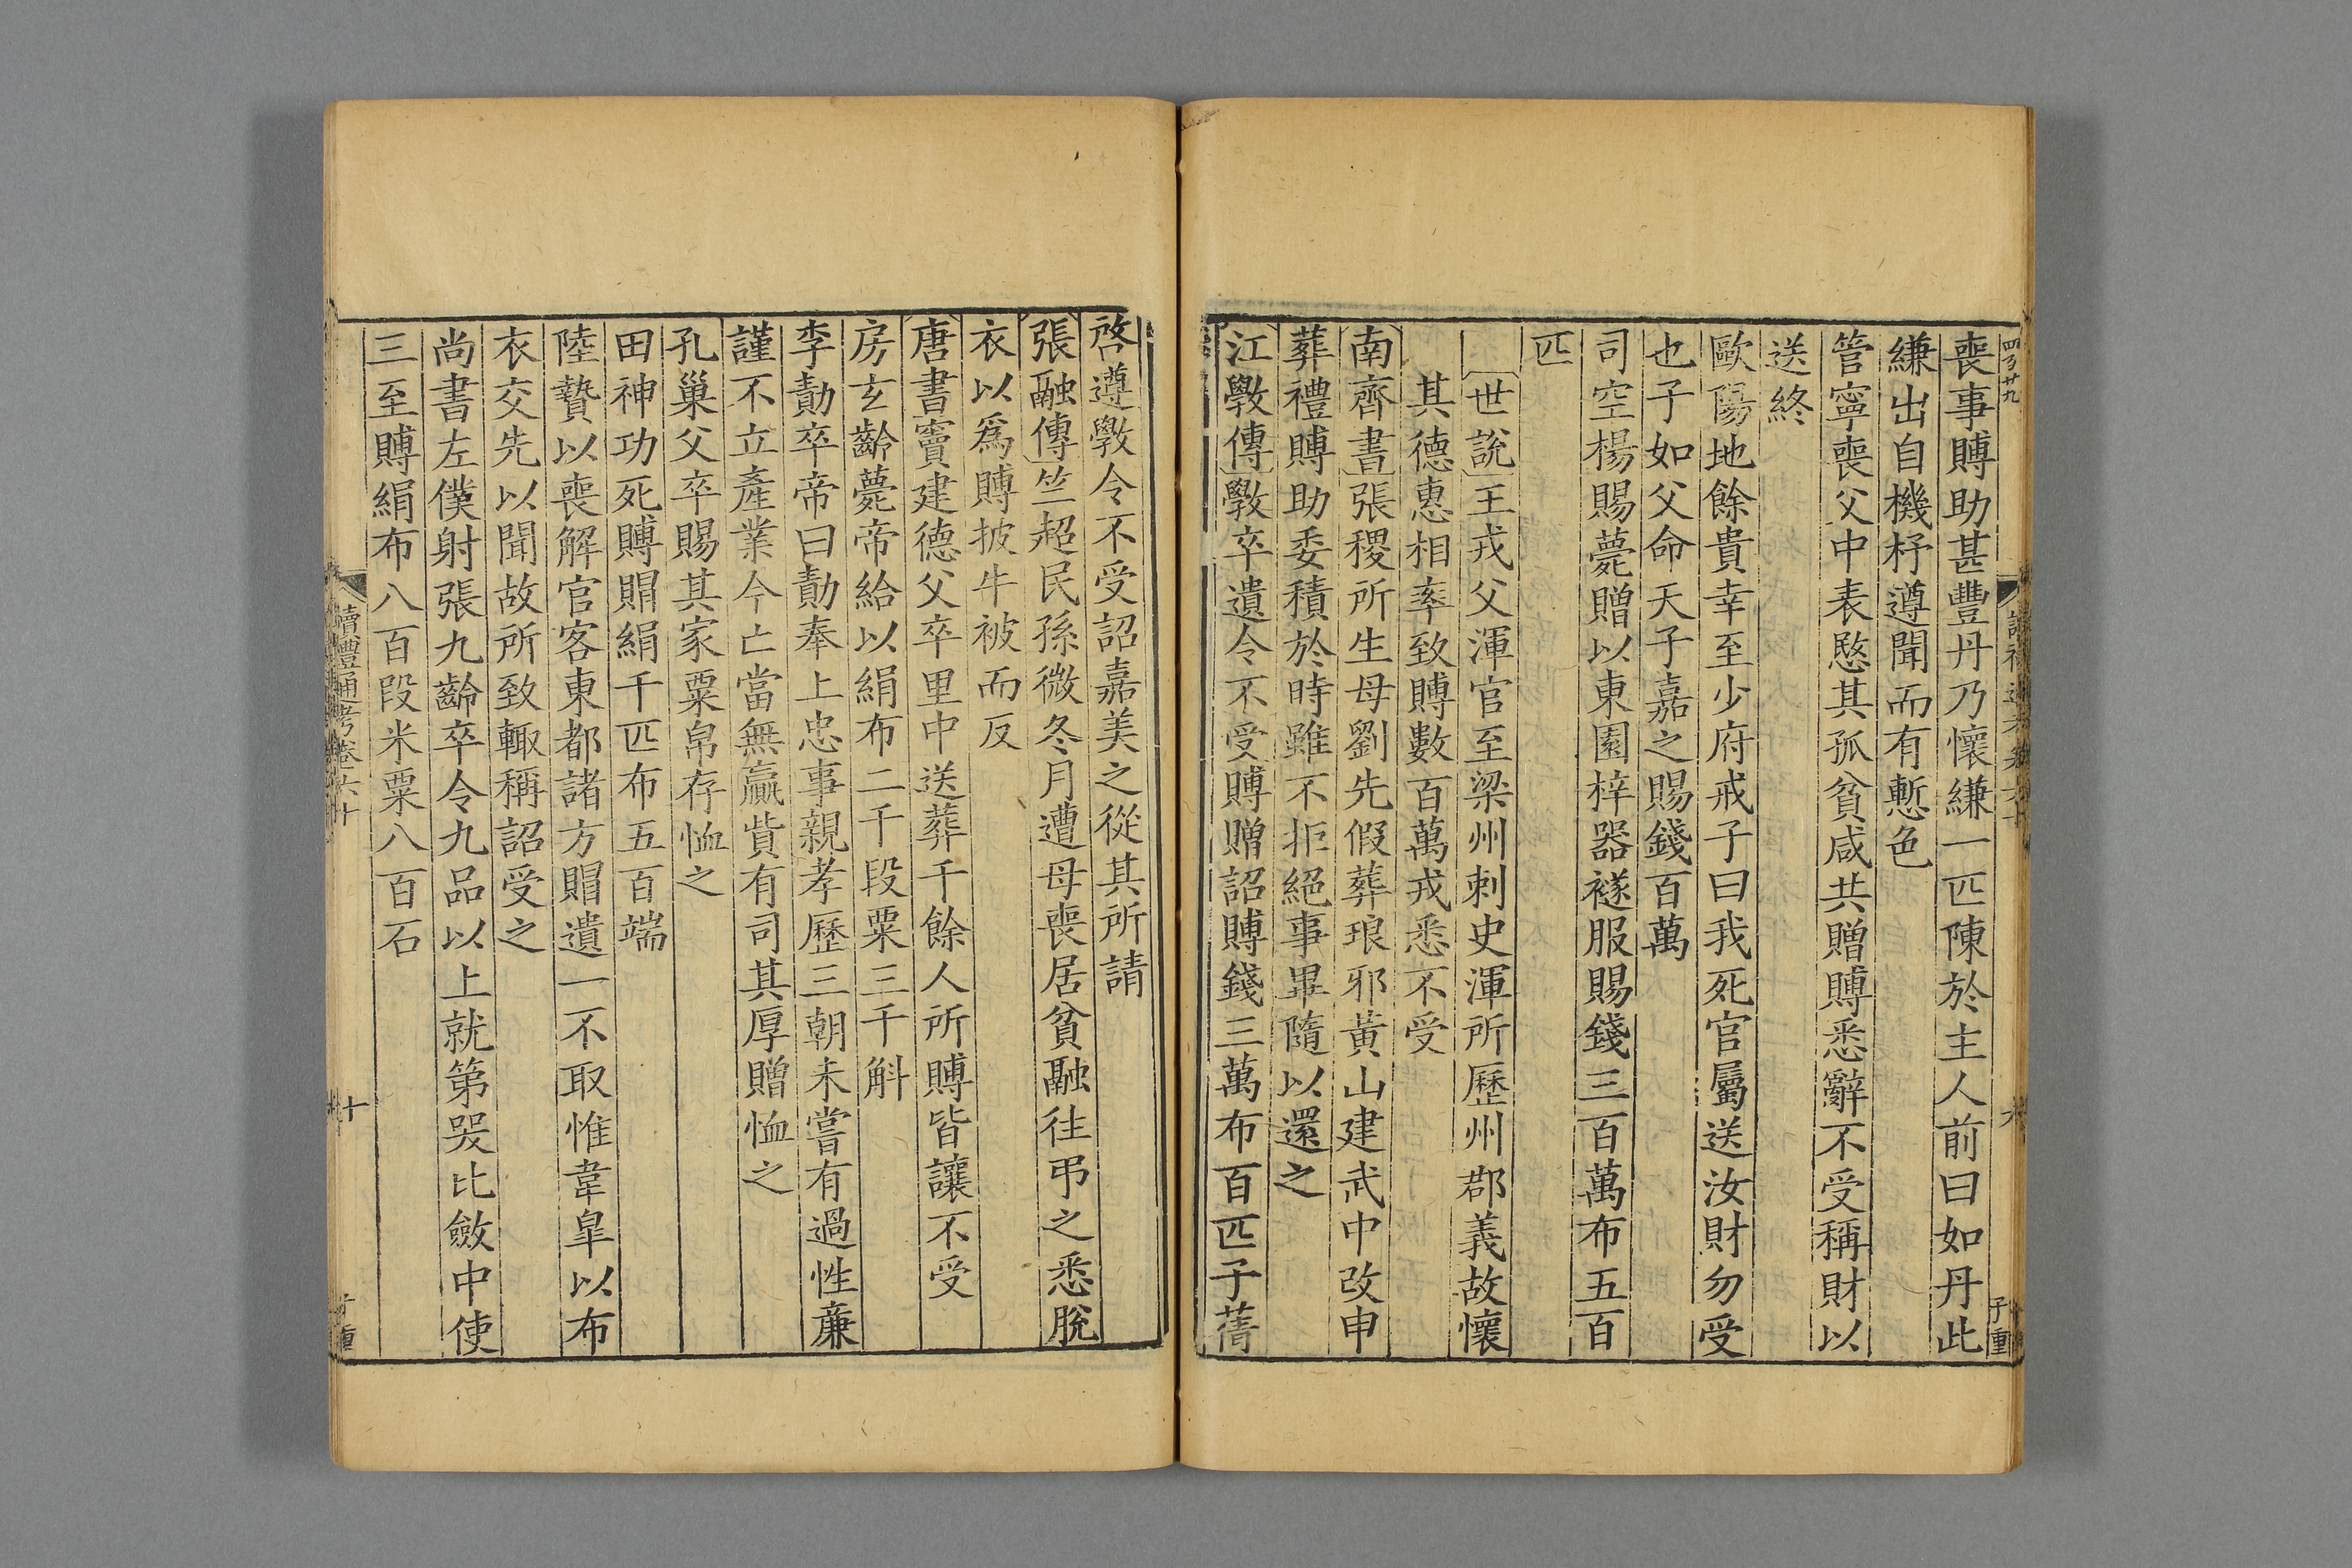 喪事賻助甚豐丹乃懷縑一匹陳於主人前曰如丹此
縑出自機杼遵聞而有慙色
管寧喪父中表愍其孤貧咸共贈賻悉辭不受稱財以
送終
歐陽地餘貴幸至少府戒子曰我死官屬送汝財勿受
也子如父命天子嘉之賜錢百萬
司空楊賜薨贈以東園梓器襚服賜錢三百萬布五百
匹
世說王戎父渾官至梁州刺史渾所歷州郡義故懷
其德惠相率致賻數百萬戎悉不受
南齊書張稷所生母劉先假葬琅邪黃山建武中改申
葬禮賻助委積於時雖不拒絕事畢隨以還之
江斆傳斆卒遺令不受賻贈詔賻錢三萬布百匹子蒨
啓遵斆令不受詔嘉美之從其所請
張融傳竺超民孫微冬月遭母喪居貧融往弔之悉脫
衣以爲賻披牛被而反
唐書竇建德父卒里中送葬千餘人所賻皆讓不受
房玄齡薨帝給以絹布二千段粟三千斛
李勣卒帝曰勣奉上忠事親孝歷三朝未嘗有過性廉
謹不立產業今亡當無贏貲有司其厚贈恤之
孔巢父卒賜其家粟帛存恤之
田神功死賻賵絹千匹布五百端
陸贄以喪解官客東都諸方賵遺一不取惟韋臯以布
衣交先以聞故所致輙稱詔受之
尚書左僕射張九齡卒令九品以上就第哭比斂中使
三至賻絹布八百段米粟八百石
讀禮通考卷六十
十
子重